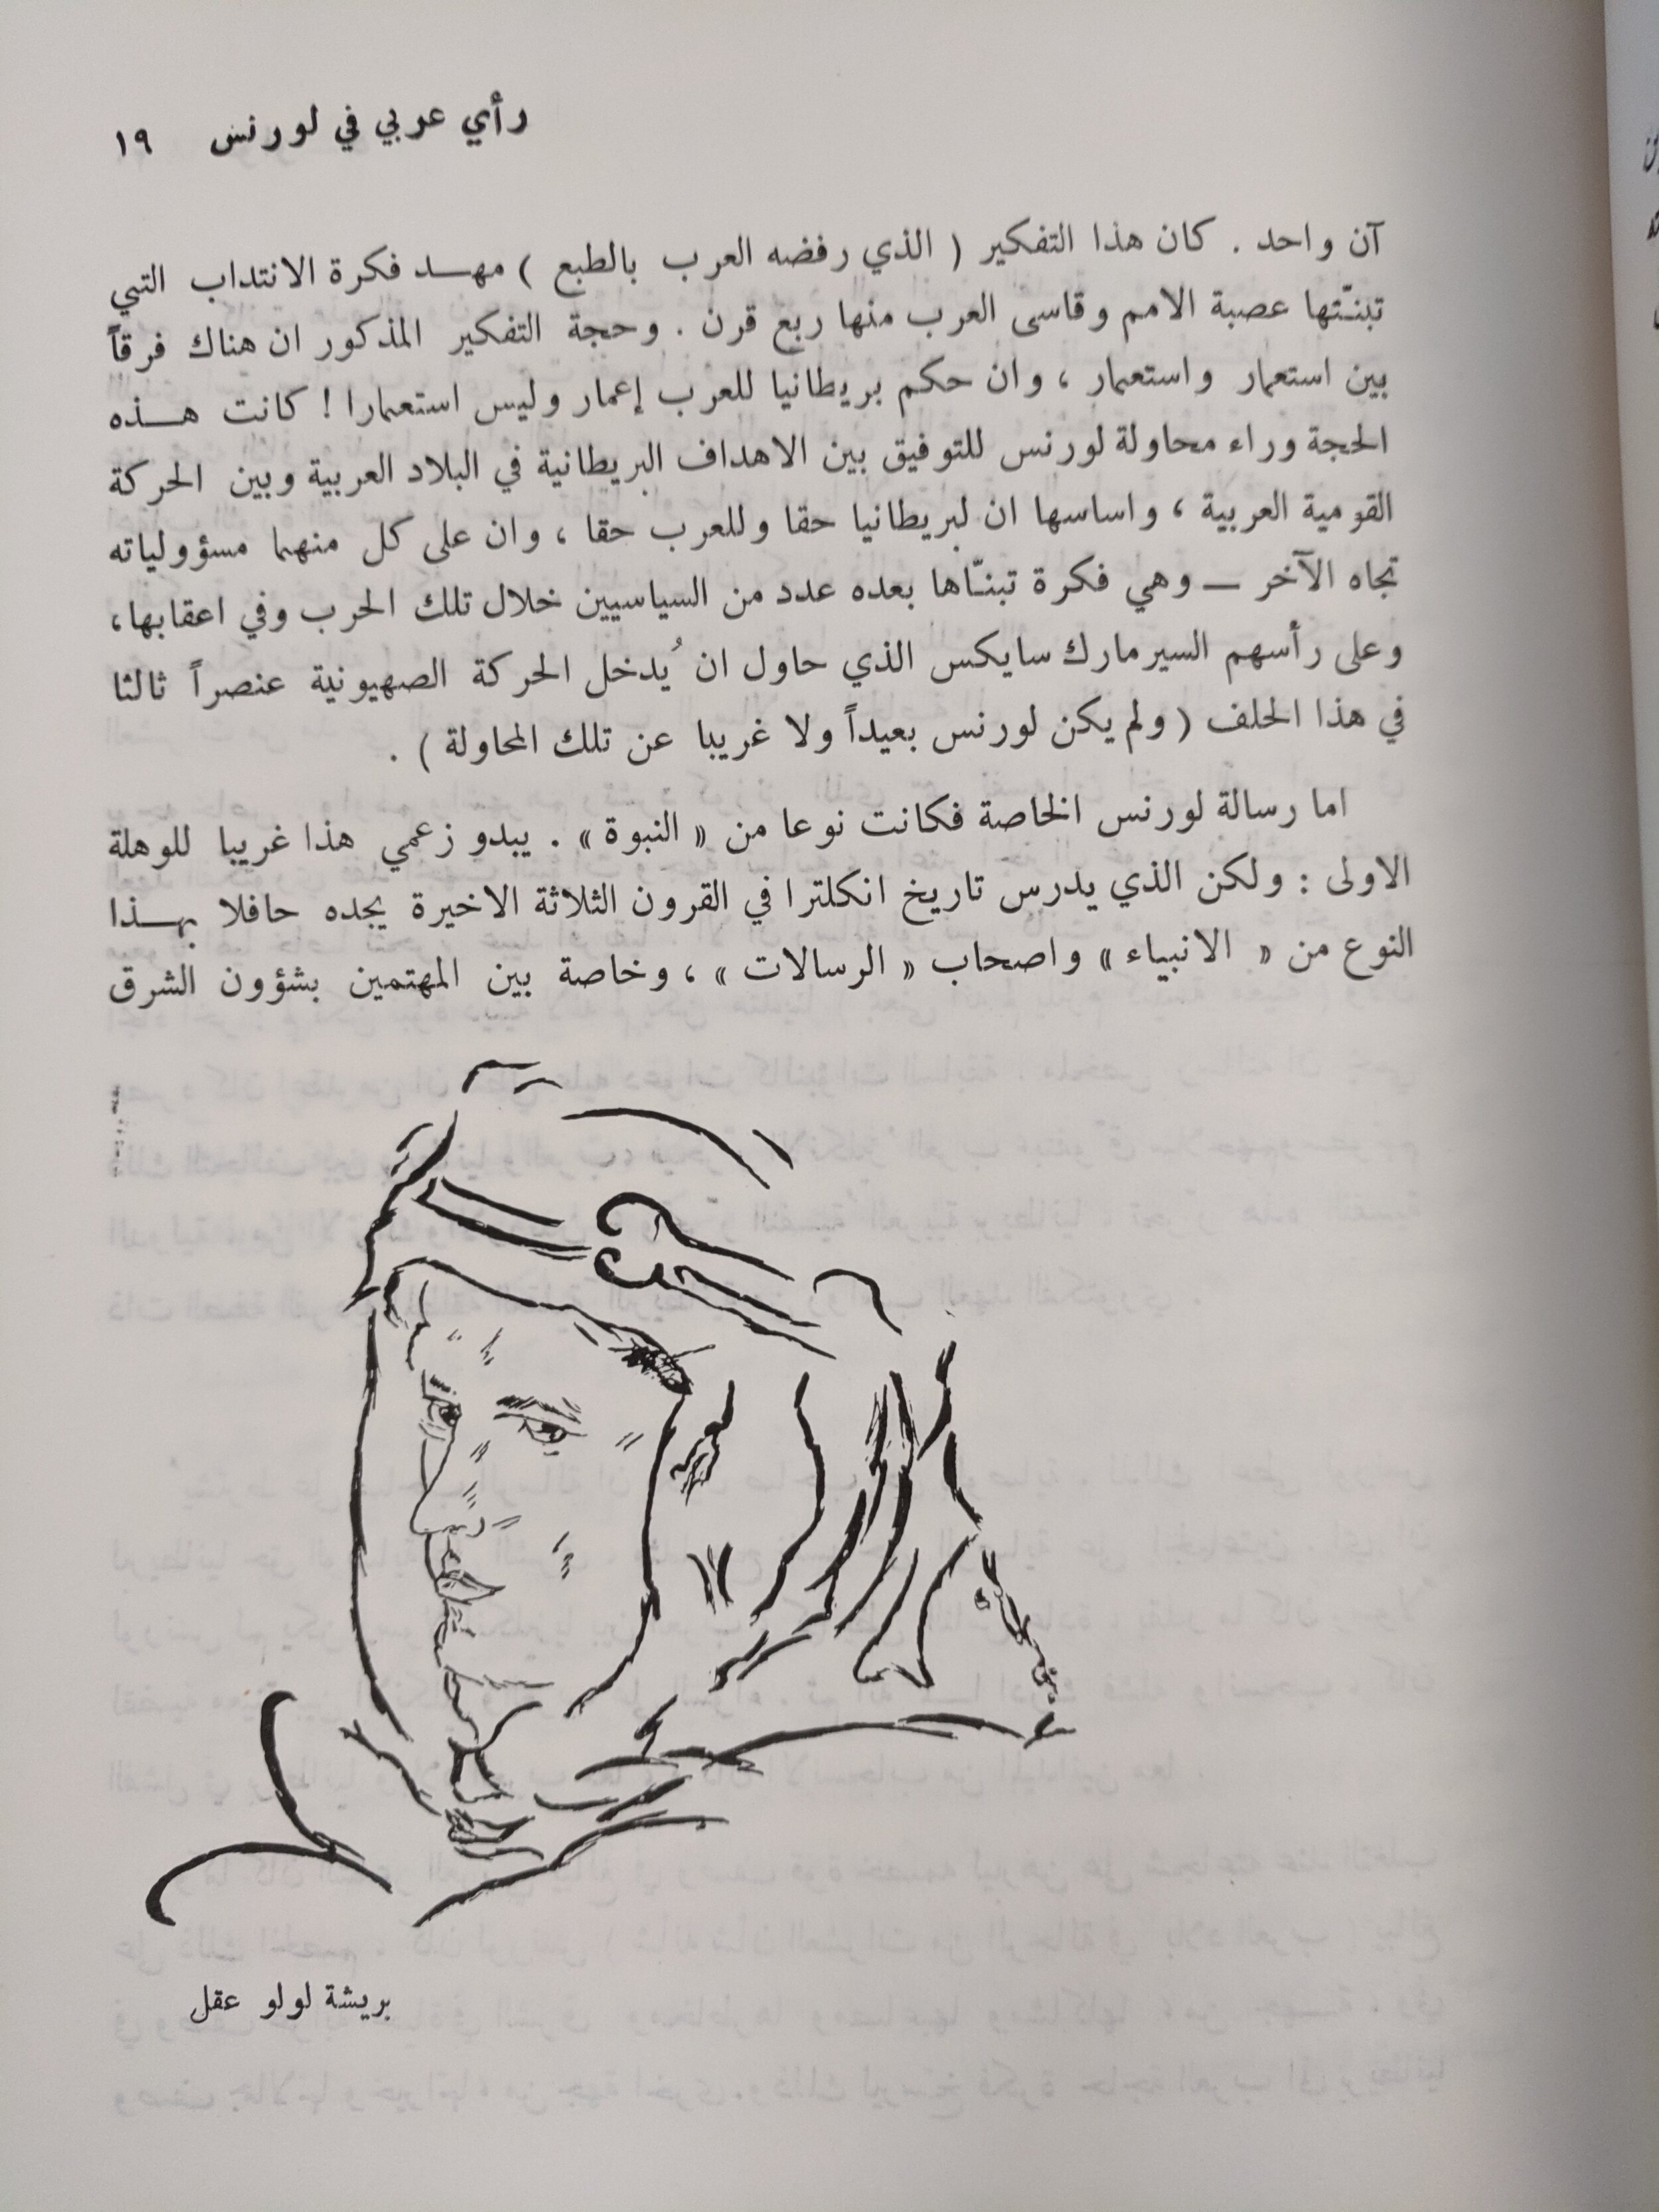 رأي عربي في لورنس ١٩
آن واحد . كان هذا التفكير ( الذي رفضه العرب بالطبع ) مهـد فكرة الانتداب التي
تبنـّتها عصبة الامم وقاسى العرب منها ربع قرن . وحجة التفكير المذكور ان هناك فرقاً
بين استعمار واستعمار ، وان حكم بريطانيا للعرب إعمار وليس استعمارا ! كانت هـذه
الحجة وراء محاولة لورنس للتوفيق بين الاهداف البريطانية في البلاد العربية وبين الحركة
القومية العربية ، واساسها ان لبريطانيا حقا وللعرب حقا ، وان على كل منهما مسؤولياته
تجاه الآخر — وهي فكرة تبنـّاها بعده عدد من السياسيين خلال تلك الحرب وفي اعقابها،
وعلى رأسهم السير مارك سايكس الذي حاول ان يُدخل الحركة الصهيونية عنصراً ثالثا
في هذا الحلف ( ولم يكن لورنس بعيداً ولا غريبا عن تلك المحاولة ) .
اما رسالة لورنس الخاصة فكانت نوعا من « النبوة » . يبدو زعمي هذا غريبا للوهلة
الاولى : ولكن الذي يدرس تاريخ انكلترا في القرون الثلاثة الاخيرة يجده حافلا بهـذا
النوع من « الانبياء » واصحاب « الرسالات » ، وخاصة بين المهتمين بشؤون الشرق
بريشة لولو عقل